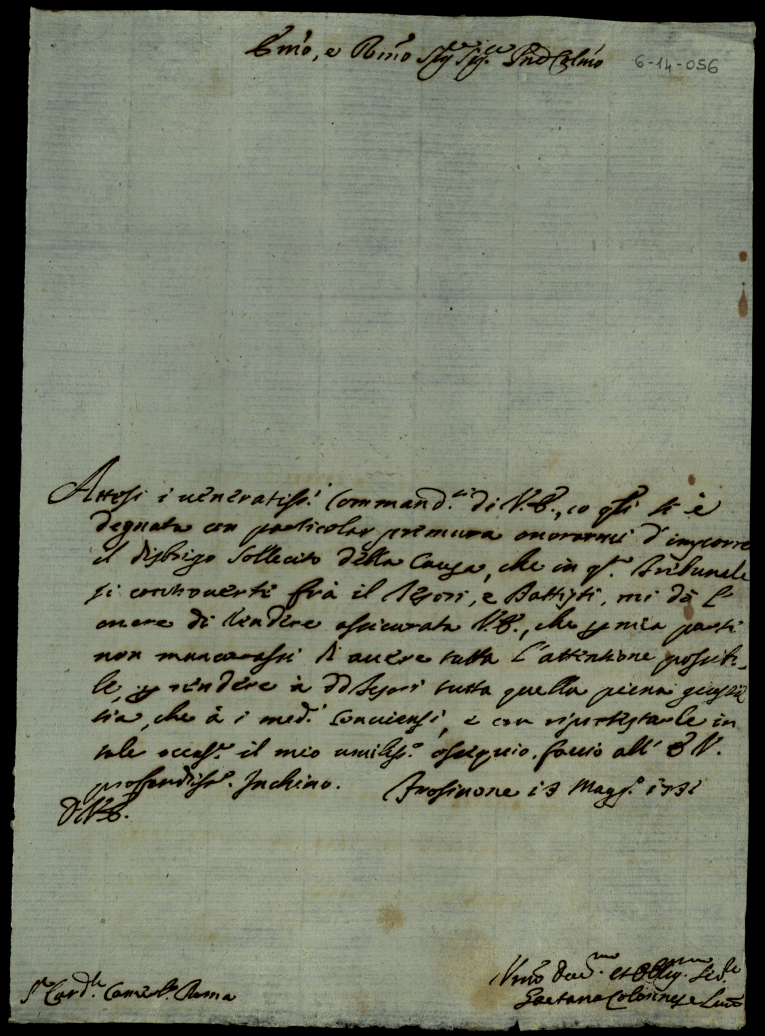 Emo, e Rmo Sig.re Sig.re Pne Colmo
6-14-056
Attesi i veneratiss.i Commandi di V.E., co qsli si è
degnata con particolar premura onorarmi d'imporre
il disbrigo sollecito della Causa, che in qt. Tribunale
si controverte frà il Tesori, e Battisti, mi dò l'
onore di rendere assicurata V.E., che p mia parte
non mancarassi di avere tutta l'attentione possibi-
le, p rendere à dd Tesori tutta quella piena giusti-
tia, che à i med.i conviensi, e con riprotestarle in
tale occas.e il mio umiliss.o ossequio, faccio all' E V.
profondiss.o Inchino. Frosinone 13 Magg.o
D V.E.
S.r Card.le Camerl.o Roma
Umo Dev.mo et Oblig.mo Ser.re
Gaetano